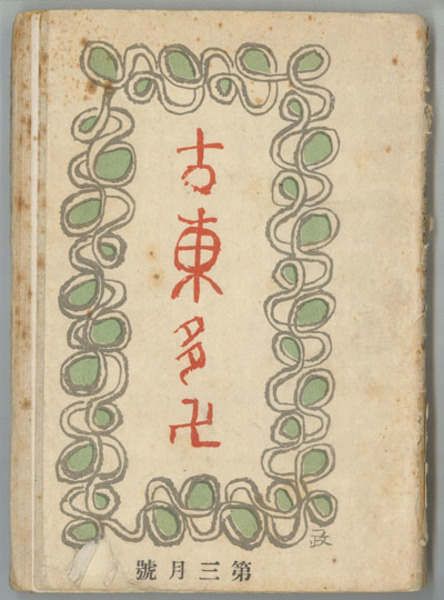 古東多卍
政
第三月號